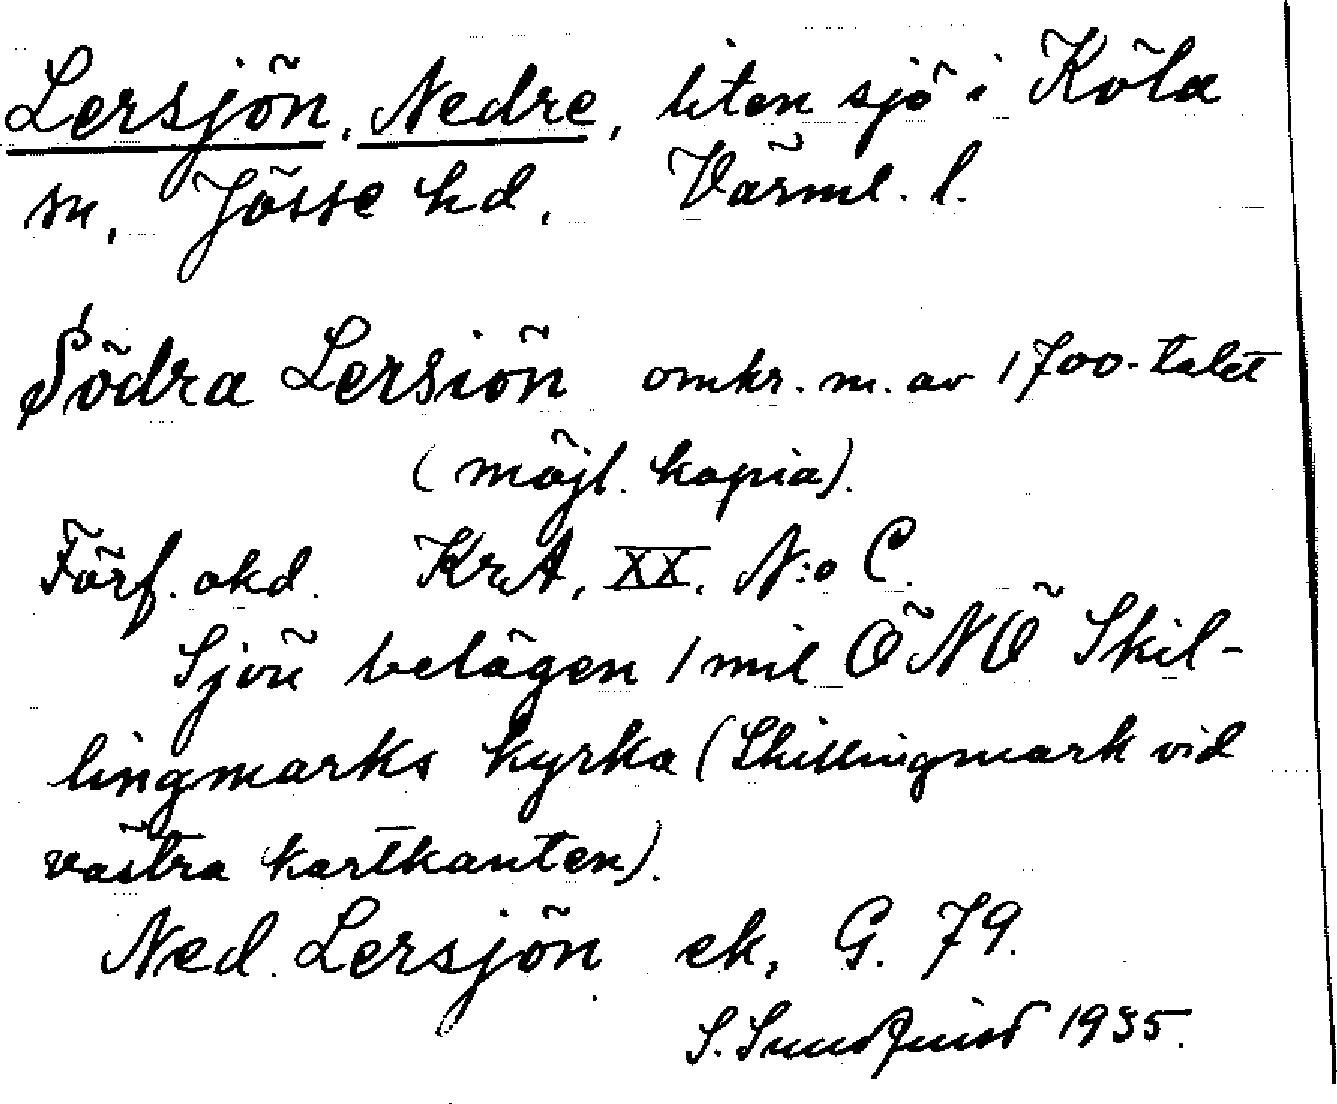 Lersjön, Nedre, liten sjö i Köla
sn, Jösse hd, Värml. l.
Södra Lersiön omkr. m. av 1700-talet
(möjl. kopia).
Förf. okd. KrA, XX, N:o C.
Sjön belägen 1 mil ÖNÖ Skil-
lingmarks kyrka (Skillingmark vid
västra kartkanten).
Ned. Lersjön ek, G. 79.
S. Sundquist 1935.